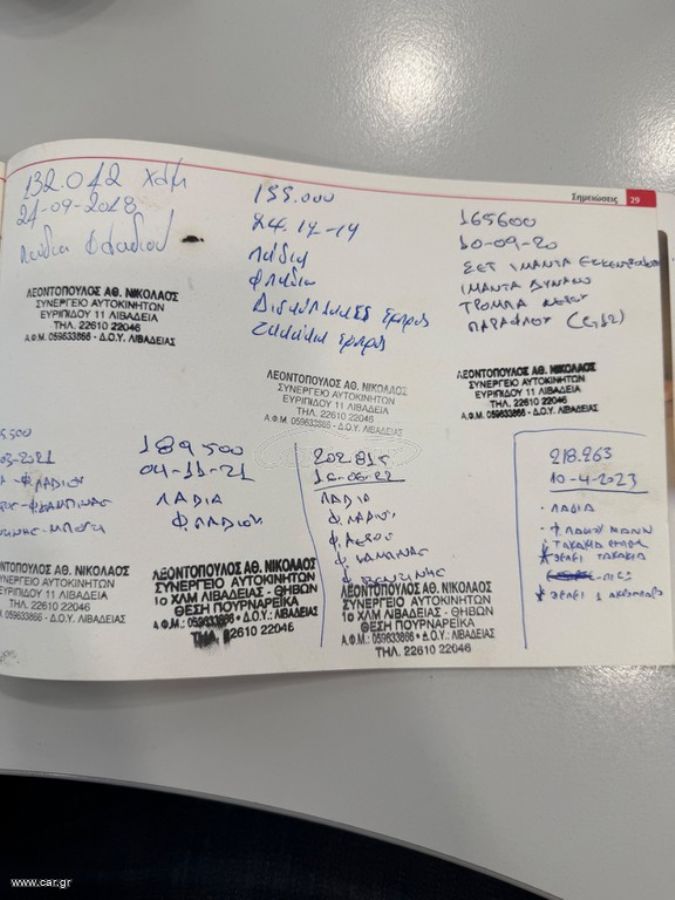 Σημειώσεις 29
132.012 χλμ
21-09-2018
Λάδια Φ λαδιού
ΛΕΟΝΤΟΠΟΥΛΟΣ ΑΘ. ΝΙΚΟΛΑΟΣ
ΣΥΝΕΡΓΕΙΟ ΑΥΤΟΚΙΝΗΤΩΝ
ΕΥΡΙΠΙΔΟΥ 11 ΛΙΒΑΔΕΙΑ
ΤΗΛ. 22610 22046
Α.Φ.Μ. 059633866 - Δ.Ο.Υ. ΛΙΒΑΔΕΙΑΣ
155.000
24.12-19
Λάδια
Φλαδιου
εμπρος
εμπρος
ΛΕΟΝΤΟΠΟΥΛΟΣ ΑΘ. ΝΙΚΟΛΑΟΣ
ΣΥΝΕΡΓΕΙΟ ΑΥΤΟΚΙΝΗΤΩΝ
ΕΥΡΙΠΙΔΟΥ 11 ΛΙΒΑΔΕΙΑ
ΤΗΛ. 22610 22046
Α.Φ.Μ. 059633866 - Δ.Ο.Υ. ΛΙΒΑΔΕΙΑΣ
165600
10-09-20
ΣΕΤ ΙΜΑΝΤΑ
ΙΜΑΝΤΑ ΔΥΝΑΜΟ
ΤΡΟΜΠΑ ΝΕΡΟΥ
ΠΑΡΑΦΛΟΥ (G12)
ΛΕΟΝΤΟΠΟΥΛΟΣ ΑΘ. ΝΙΚΟΛΑΟΣ
ΣΥΝΕΡΓΕΙΟ ΑΥΤΟΚΙΝΗΤΩΝ
ΕΥΡΙΠΙΔΟΥ 11 ΛΙΒΑΔΕΙΑ
ΤΗΛ. 22610 22046
Α.Φ.Μ. 059633866 - Δ.Ο.Υ. ΛΙΒΑΔΕΙΑΣ
5.500
03-2021
Α - Φ.ΛΑΔΙΟΥ
-Φ.ΚΑΜΠΙΝΑΣ
ΖΙΝΗΣ-ΜΠΟΥΖΙ
ΛΕΟΝΤΟΠΟΥΛΟΣ ΑΘ. ΝΙΚΟΛΑΟΣ
ΣΥΝΕΡΓΕΙΟ ΑΥΤΟΚΙΝΗΤΩΝ
ΕΥΡΙΠΙΔΟΥ 11 ΛΙΒΑΔΕΙΑ
ΤΗΛ. 22610 22046
059633866 - Δ.Ο.Υ. ΛΙΒΑΔΕΙΑΣ
189.500
04-11-21
ΛΑΔΙΑ
Φ.ΛΑΔΙΟΥ
ΛΕΟΝΤΟΠΟΥΛΟΣ ΑΘ. ΝΙΚΟΛΑΟΣ
ΣΥΝΕΡΓΕΙΟ ΑΥΤΟΚΙΝΗΤΩΝ
1ο ΧΛΜ ΛΙΒΑΔΕΙΑΣ - ΘΗΒΩΝ
ΘΕΣΗ ΠΟΥΡΝΑΡΕΪΚΑ
Α.Φ.Μ.: 059633866 • Δ.Ο.Υ.: ΛΙΒΑΔΕΙΑΣ
ΤΗΛ. 22610 22046
202.815
16-06-22
ΛΑΔΙΑ
Φ.ΛΑΔΙΟΥ
Φ.ΑΕΡΟΣ
Φ.ΚΑΜΠΙΝΑΣ
Φ.ΒΕΝΖΙΝΗΣ
ΛΕΟΝΤΟΠΟΥΛΟΣ ΑΘ. ΝΙΚΟΛΑΟΣ
ΣΥΝΕΡΓΕΙΟ ΑΥΤΟΚΙΝΗΤΩΝ
1ο ΧΛΜ ΛΙΒΑΔΕΙΑΣ - ΘΗΒΩΝ
ΘΕΣΗ ΠΟΥΡΝΑΡΕΪΚΑ
Α.Φ.Μ.: 059633866 • Δ.Ο.Υ.: ΛΙΒΑΔΕΙΑΣ
ΤΗΛ. 22610 22046
218.263
10-4-2023
• ΛΑΔΙΑ
• ΦΛΑΔΙΟΥ MANN
• ΤΑΚΑΚΙΑ
* ΘΕΛΕΙ ΤΑΚΑΚΙΑ
* ΘΕΛΕΙ 1
www.car.gr